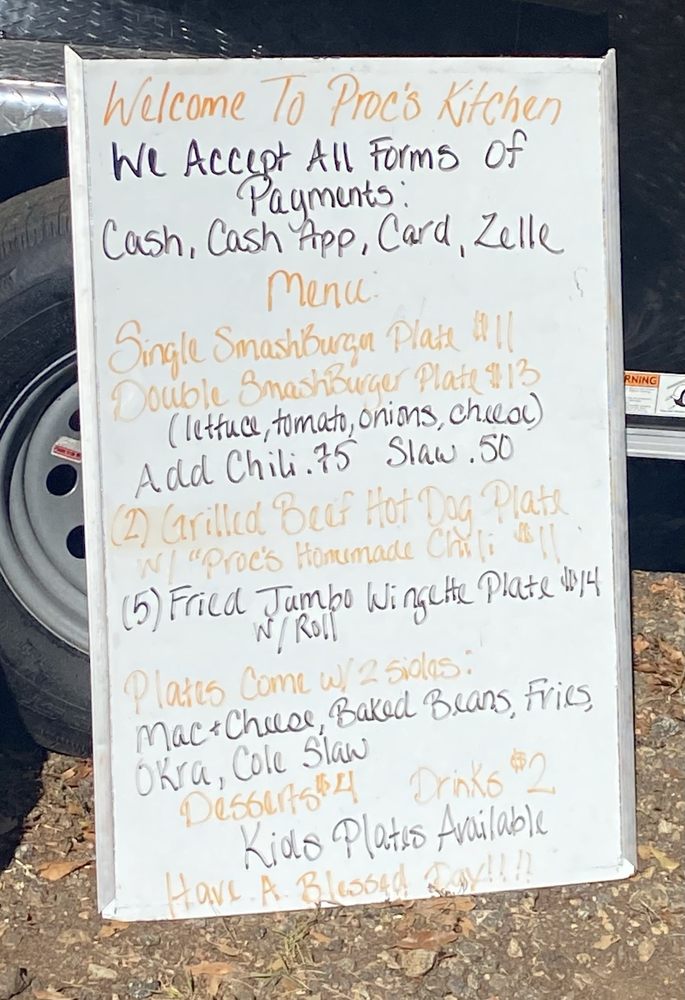 Welcome To Proc's Kitchen
We Accept All Forms Of
Payments:
Cash, Cash App, Card, Zelle
Menu:
Single SmashBurger Plate $11
Double SmashBurger Plate $13
(lettuce, tomato, onions, cheese)
Add Chili .75 Slaw .50
(2) Grilled Beef Hot Dog Plate
W/ "Proc's Homemade Chili $11
(5) Fried Jumbo Wingette Plate $14
W/ Roll
Plates Come w/ 2 sides:
Mac+Cheese, Baked Beans, Fries,
Okra, Cole Slaw
Desserts $4 Drinks $2
Kids Plates Available
Have A Blessed Day!!!!
RNING